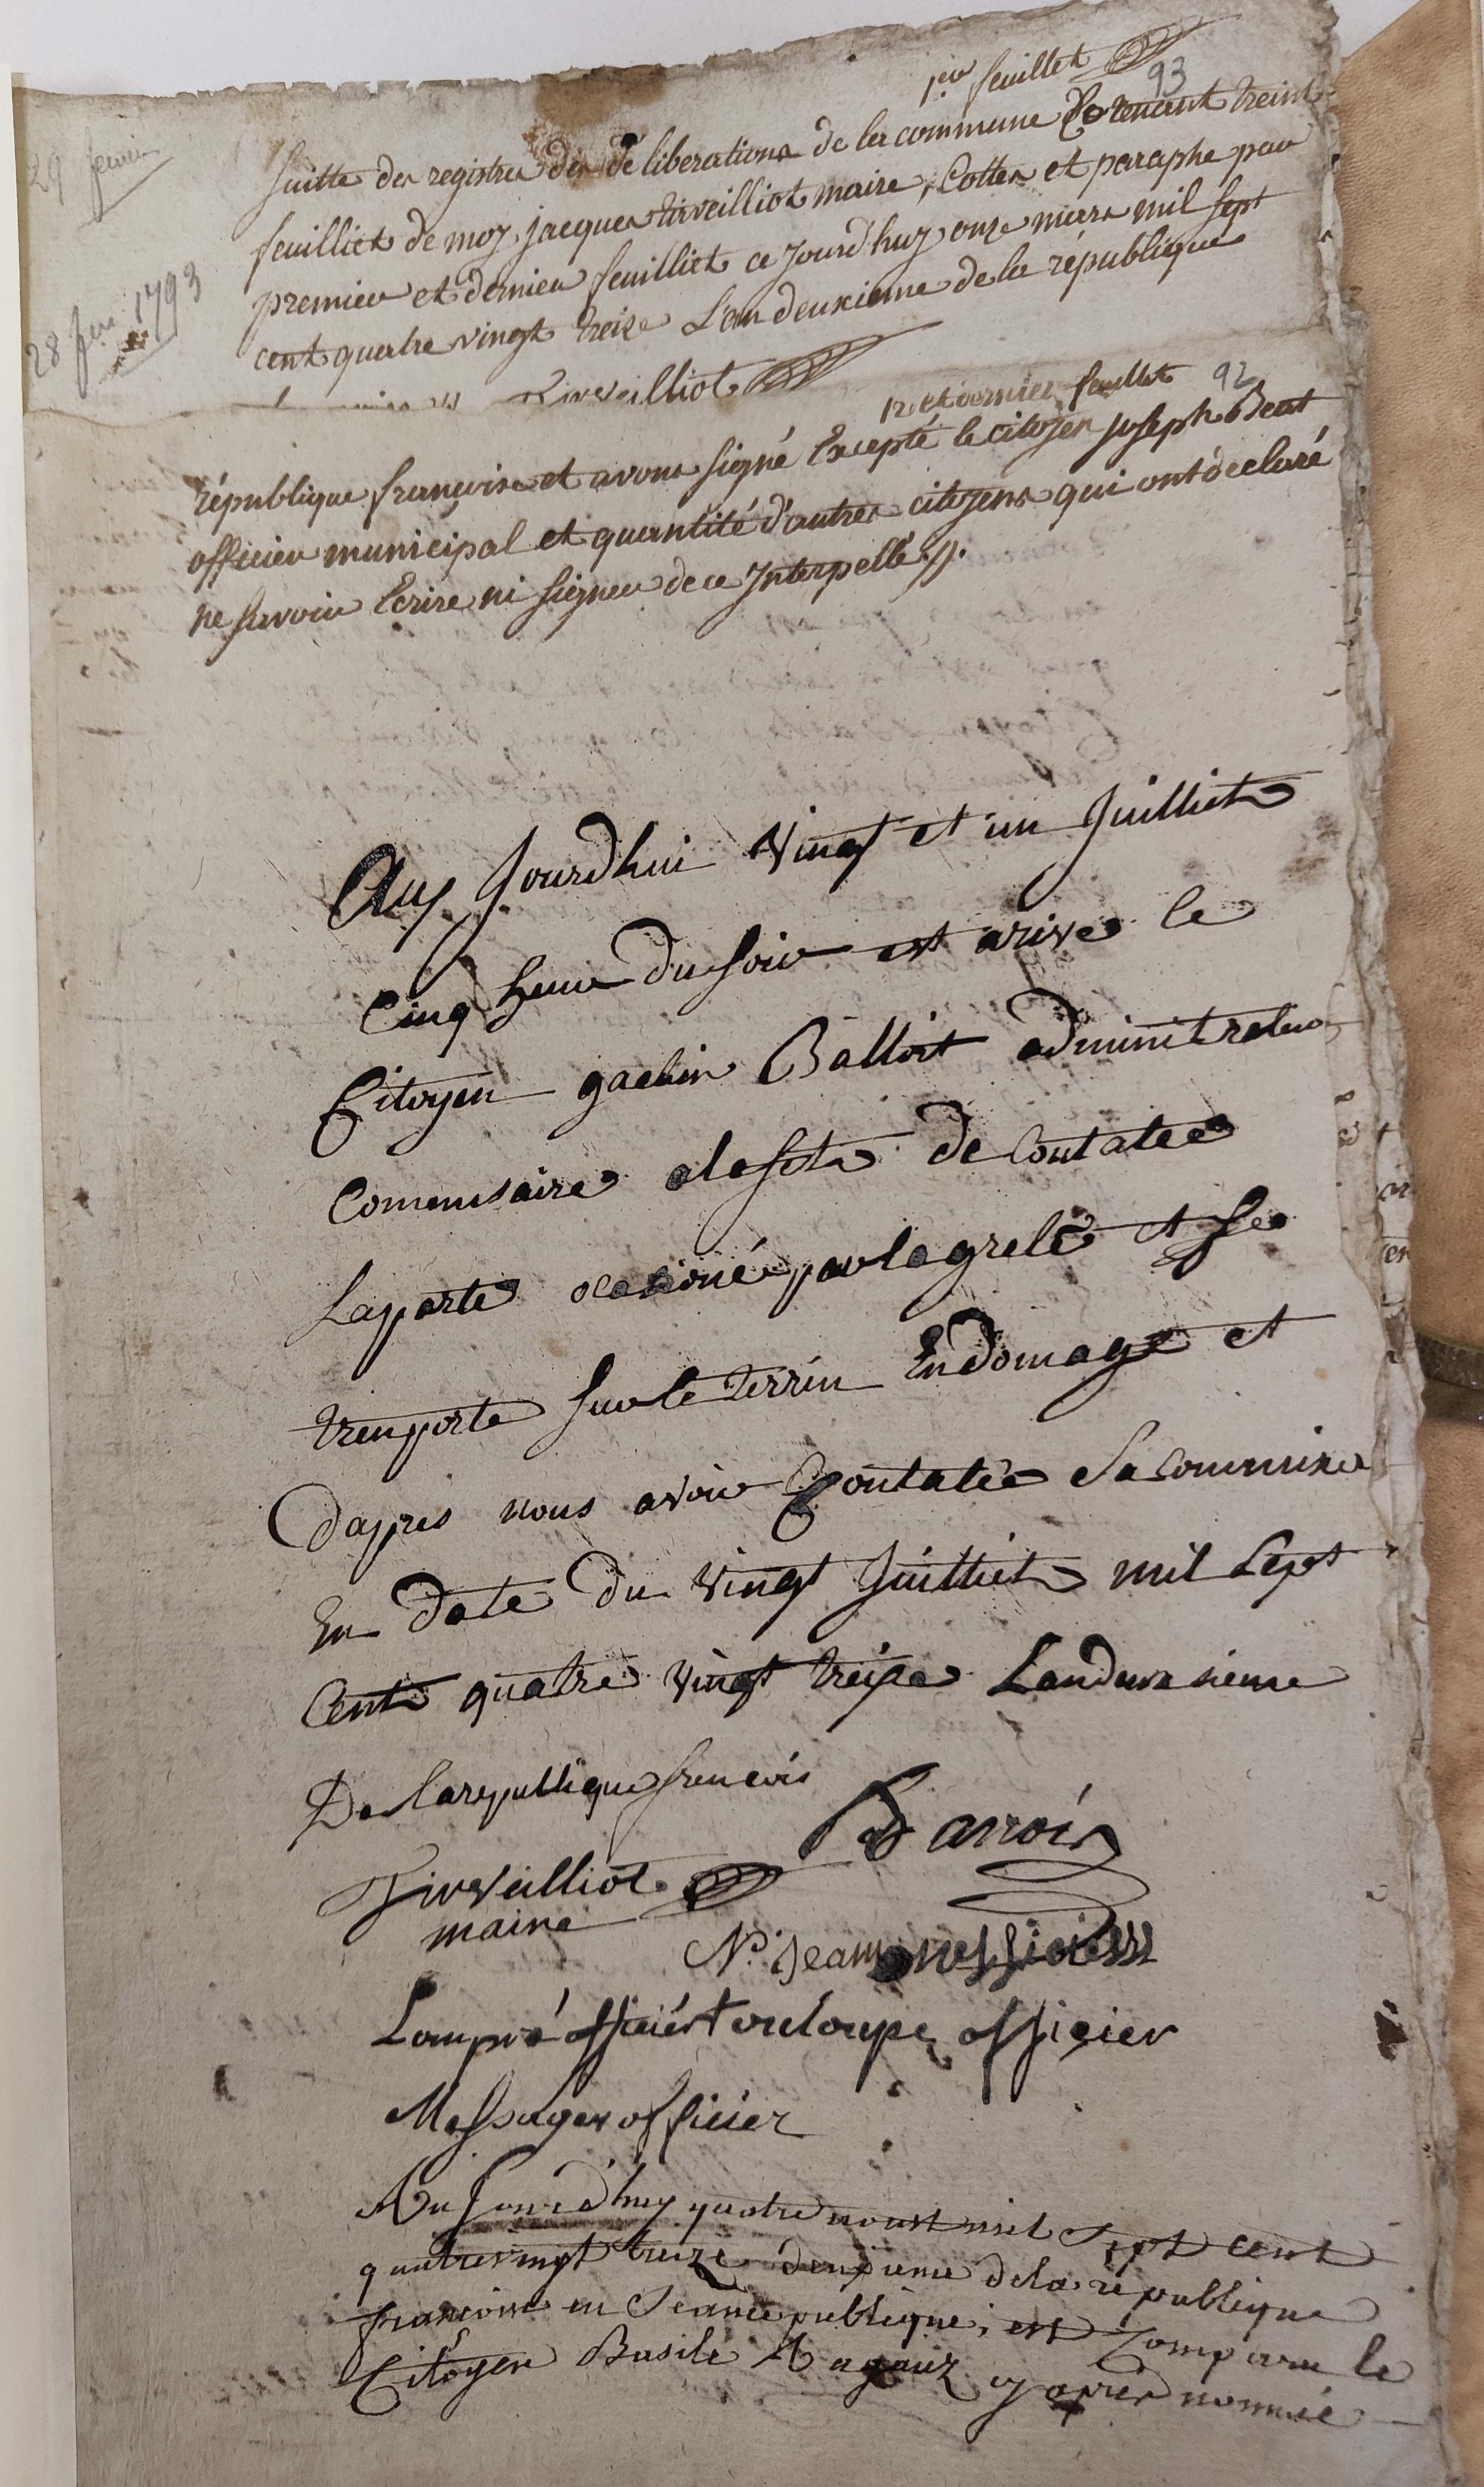 1er feuillet
93
29 fevrier
Suitte des registres des de liberations de la commune Contenant treint
feuilliet de moy jacques Virveilliot maire, Cottes et paraphe par
premier et dernier feuilliet ce jourd'huy onze mars mil sept
28 fev. 1793
cent quatre vingt treize L'an deuxieme de la république
Virveilliot
12 et dernier feuillet 92
république françoise et avons signé Excepté le citoyen joseph
officier municipal et quantité d'autres citoyens qui ont declaré
ne savoir Ecrire ni signer de ce Interpellé
Auj Jourdhui vingt et un Juilliet
Cinq heure du soir est arive le
Citoyen gachin Balliot adminitrateur
Comensaire alesfete de Contatee
Laperte ocasioné par la grele et se
trenporte sur le terrin Endomage et
dapres nous avoir Contatée Sa
En date du vingt Juilliet mil Sept
Cent quatre vingt treize Landeuxsieme
De la republique francois
Virveilliot Barrois
maire
N. Jean officier
Lompré officier touloupe officier
Messager officier
Au Jourd'huy quatre aoust mil Sept cent
quatrevingt treize deuxieme de la republique
françoise en Seance publique, est Comparu le
Citoyen Basile Ragaux cy apres nommé